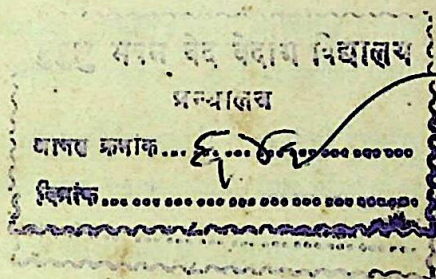 भवन वेद वेदाङ्ग विद्यालय
ग्रन्थालय
आगत क्रमांक...
दिनांक...